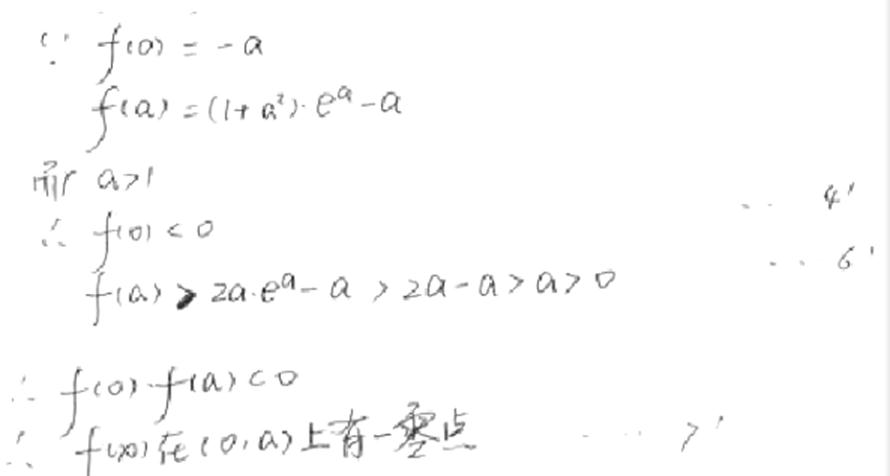 ∵ f(0) = -a
f(a) = (1+a²)·eᵃ-a
而 a>1
∴ f(0) < 0 ... 4'
f(a) > 2a·eᵃ-a > 2a-a > a > 0 ... 6'
∴ f(0)·f(a)<0
∴ f(x)在(0,a)上有一零点 ... 7'